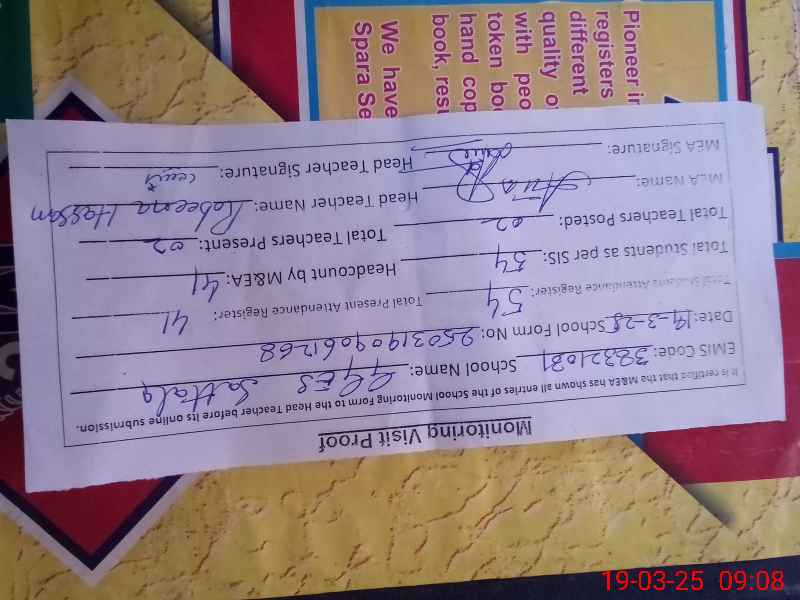 Monitoring Visit Proof
It is certified that the M&EA has shown all entries of the School Monitoring Form to the Head Teacher before its online submission.
EMIS Code: 38321081 School Name: GGES Sattala
Date: 19-3-25 School Form No: 25031909061268
Total Students Attendance Register: 54 Total Present Attendance Register: 41
Total Students as per SIS: 54 Headcount by M&EA: 41
Total Teachers Posted: 02 Total Teachers Present: 02
MEA Name: Head Teacher Name: Rabeena Hassan
MEA Signature: Head Teacher Signature:
Pioneer in
registers
different
quality of
with peo
token boo
hand cop
book, resu
We have
Spara Se
19-03-25 09:08